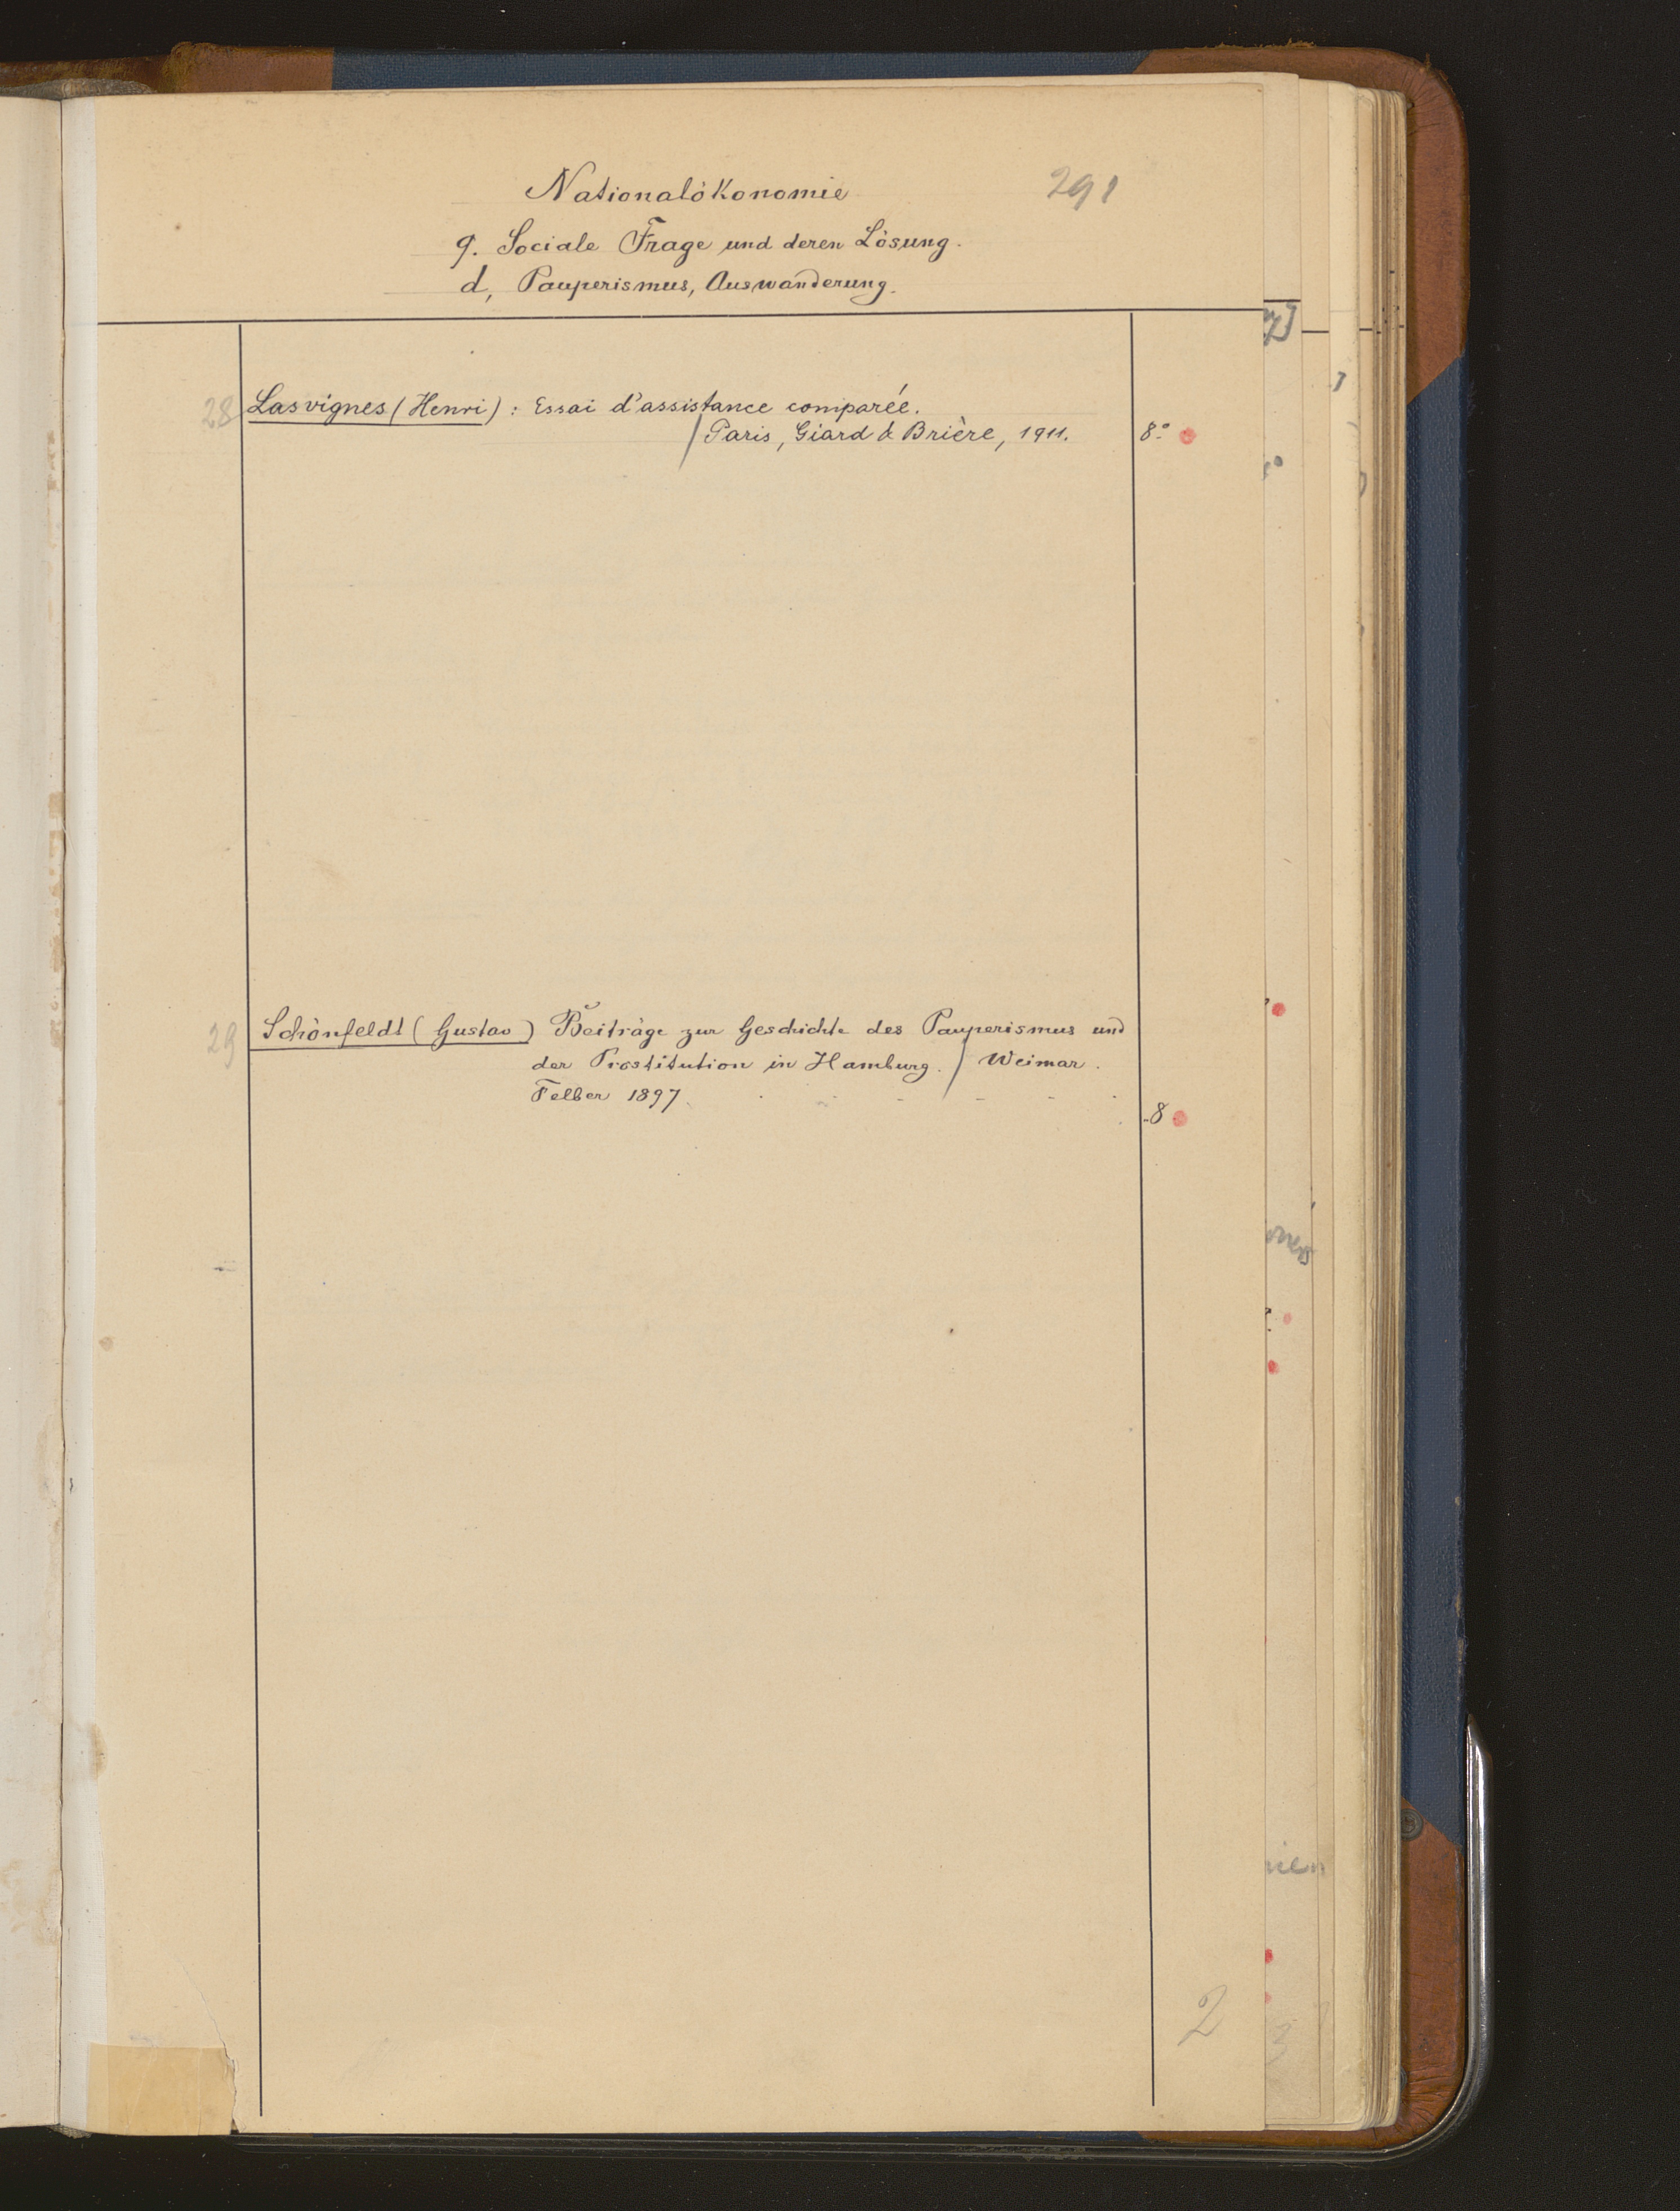 Nationalökonomie
291
9. Sociale Frage und deren Lösung.
d, Pauperismus, Auswanderung.
28 Lasvignes (Henri) : Essai d'assistance comparée.
/ Paris, Giard & Brière, 1911. 8°
29 Schönfeldt (Gustav) Beiträge zur Geschichte des Pauperismus und
der Prostitution in Hamburg. / Weimar.
Felber 1897. 8
2